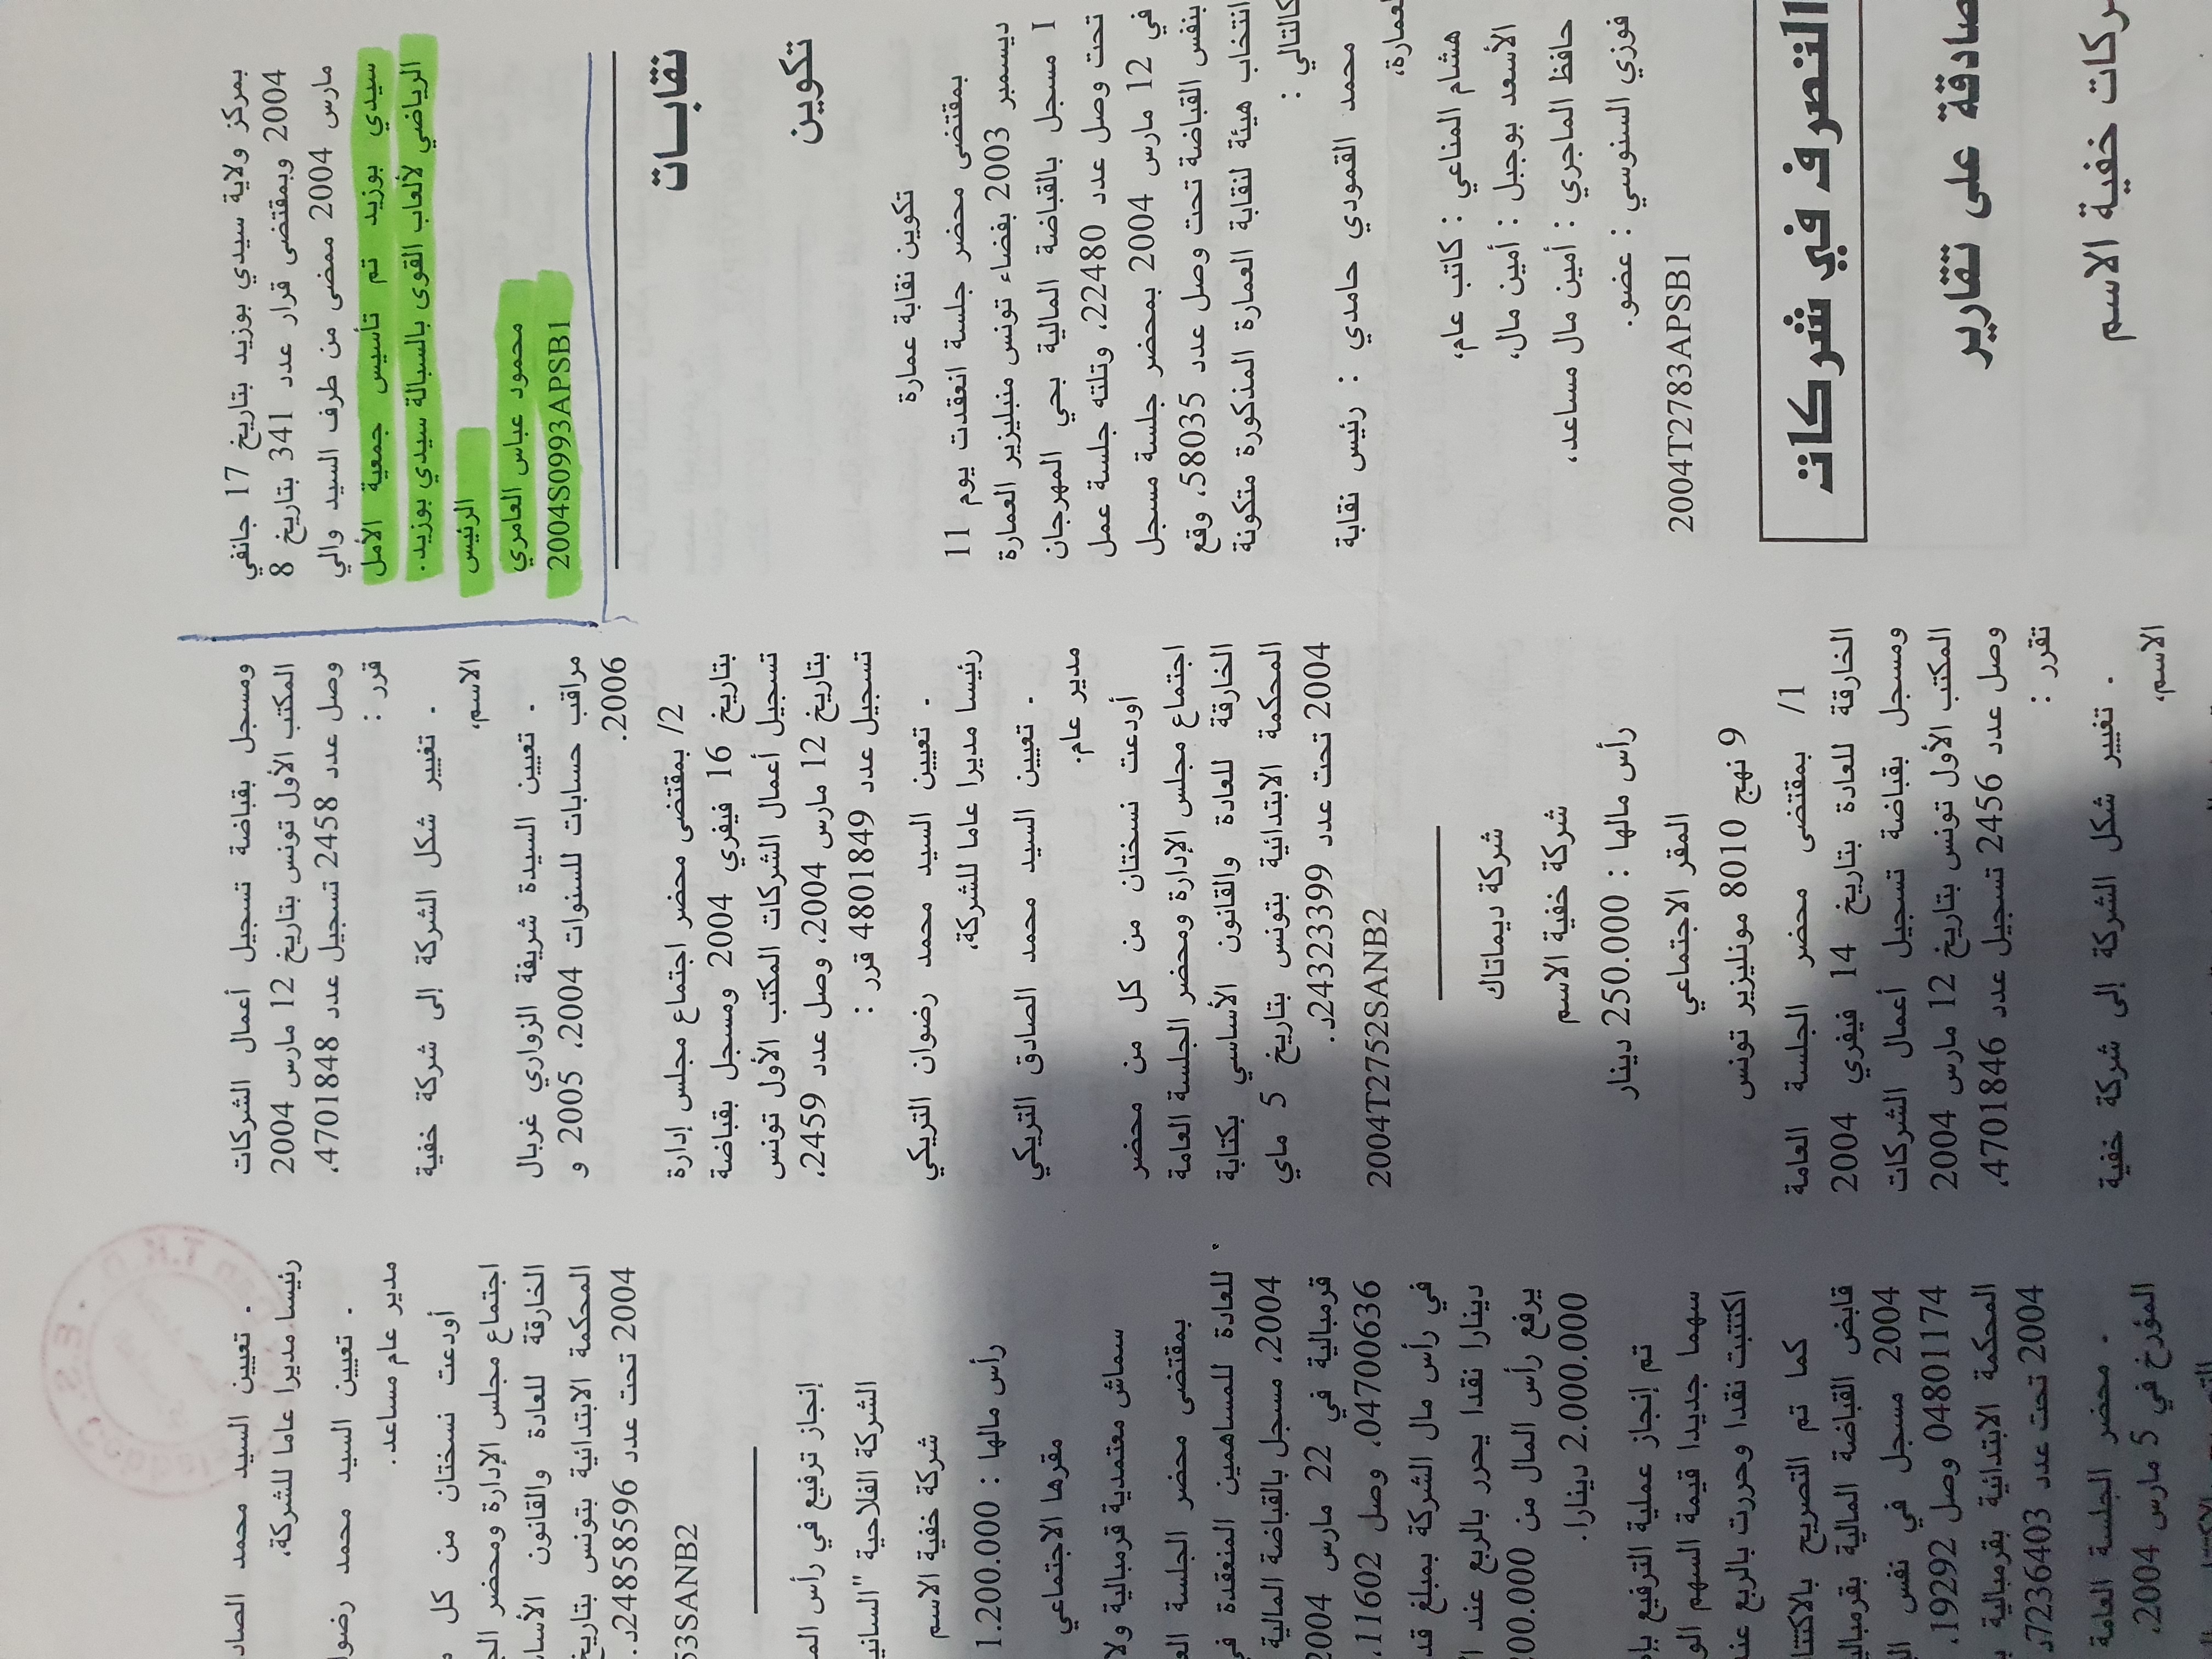 بمركز ولاية سيدي بوزيد بتاريخ 17 جانفي
2004 وبمقتضى قرار عدد 341 بتاريخ 8
مارس 2004 ممضى من طرف السيد والي
سيدي بوزيد تم تأسيس جمعية الأمل
الرياضي لألعاب القوى بالسبالة سيدي بوزيد.
الرئيس
محمود عباس العامري
2004S0993APSB1
نقابــات
تكوين
تكوين نقابة عمارة
بمقتضى محضر جلسة انعقدت يوم 11
ديسمبر 2003 بفضاء تونس منبليزير العمارة
I مسجل بالقباضة المالية بحي المهرجان
تحت وصل عدد 22480، وتلته جلسة عمل
في 12 مارس 2004 بمحضر جلسة مسجل
بنفس القباضة تحت وصل عدد 58035، وقع
انتخاب هيئة لنقابة العمارة المذكورة متكونة
كالتالي :
محمد القمودي حامدي : رئيس نقابة
العمارة،
هشام المناعي : كاتب عام،
الأسعد بوجبل : أمين مال،
حافظ الماجري : أمين مال مساعد،
فوزي السنوسي : عضو.
2004T2783APSB1
التصرف في شركات
صادقة على تقارير
ركات خفية الاسم
ومسجل بقباضة تسجيل أعمال الشركات
المكتب الأول تونس بتاريخ 12 مارس 2004
وصل عدد 2458 تسجيل عدد 4701848،
قرر :
. تغيير شكل الشركة إلى شركة خفية
الاسم،
. تعيين السيدة شريفة الزواري غربال
مراقب حسابات للسنوات 2004، 2005 و
2006.
2/ بمقتضى محضر اجتماع مجلس إدارة
بتاريخ 16 فيفري 2004 ومسجل بقباضة
تسجيل أعمال الشركات المكتب الأول تونس
بتاريخ 12 مارس 2004، وصل عدد 2459،
تسجيل عدد 4801849 قرر :
. تعيين السيد محمد رضوان التريكي
رئيسا مديرا عاما للشركة،
. تعيين السيد محمد الصادق التريكي
مدير عام.
أودعت نسختان من كل من محضر
اجتماع مجلس الإدارة ومحضر الجلسة العامة
الخارقة للعادة والقانون الأساسي بكتابة
المحكمة الابتدائية بتونس بتاريخ 5 ماي
2004 تحت عدد 24323399د.
2004T2752SANB2
شركة ديماتاك
شركة خفية الاسم
رأس مالها : 250.000 دينار
المقر الاجتماعي
9 نهج 8010 مونليزير تونس
1/ بمقتضى محضر الجلسة العامة
الخارقة للعادة بتاريخ 14 فيفري 2004
ومسجل بقباضة تسجيل أعمال الشركات
المكتب الأول تونس بتاريخ 12 مارس 2004
وصل عدد 2456 تسجيل عدد 4701846،
تقرر :
. تغيير شكل الشركة إلى شركة خفية
الاسم،
. تعيين السيد محمد الصاد
رئيسا مديرا عاما للشركة،
. تعيين السيد محمد رضوا
مدير عام مساعد.
أودعت نسختان من كل
اجتماع مجلس الإدارة ومحضر الج
الخارقة للعادة والقانون الأسا
المحكمة الابتدائية بتونس بتاريخ
2004 تحت عدد 24858596د.
53SANB2
إنجاز ترفيع في رأس الم
الشركة الفلاحية "السانيـ
شركة خفية الاسم
رأس مالها : 1.200.000
مقرها الاجتماعي
سماش معتمدية قرمبالية ولا
بمقتضى محضر الجلسة الع
للعادة للمساهمين المنعقدة في
2004، مسجل بالقباضة المالية
قرمبالية في 22 مارس 2004
04700636، وصل 11602،
في رأس مال الشركة بمبلغ قد
دينارا نقدا يحرر بالربع عند
يرفع رأس المال من 200.000
2.000.000 دينارا.
تم إنجاز عملية الترفيع بإ
سهما جديدا قيمة السهم الو
اكتتبت نقدا وحررت بالربع عند
كما تم التصريح بالاكتتا
قابض القباضة المالية بقرمبالي
2004 مسجل في نفس
04801174 وصل 19292،
المحكمة الابتدائية بقرمبالية
2004 تحت عدد 7236403د
. محضر الجلسة العامة
المؤرخ في 5 مارس 2004،